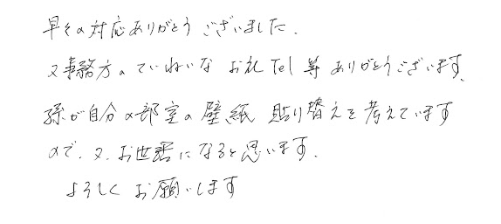 早々の対応ありがとうございました.
又事務方のていねいな お礼Tel等 ありがとうございます.
孫が自分の部室の壁紙 貼り替えを考えています
ので、又、お世話になると思います.
よろしくお願いします